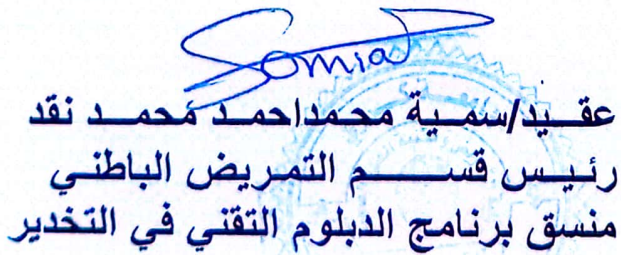 Somia
عقيد/سمية محمداحمد محمد نقد
رئيس قسم التمريض الباطني
منسق برنامج الدبلوم التقني في التخدير